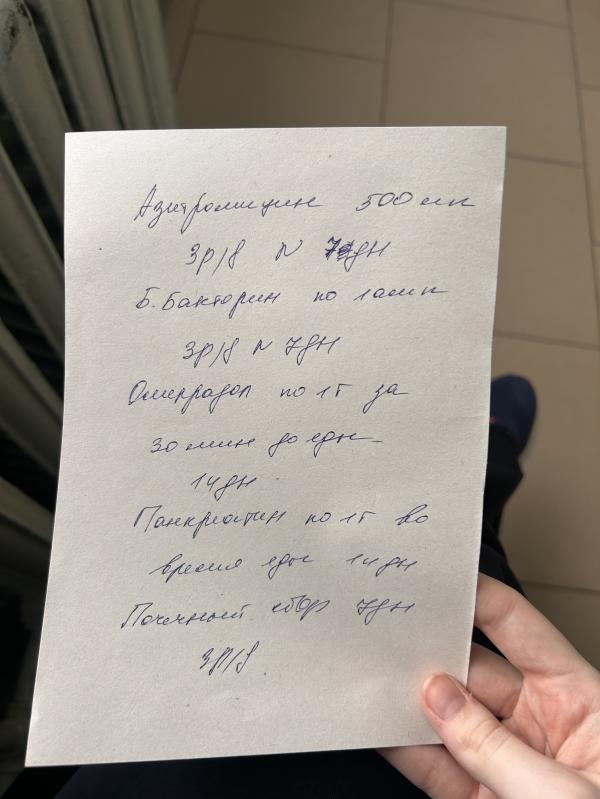 Азитромицин 500 мг
3р/д N 7дн
Б. Бакторин по 1 амп
3р/д N 7дн
Омепразол по 1т за
30 мин до еды
14дн
Панкреатин по 1т во
время еды 14дн
Почечный сбор 7дн
3р/д.